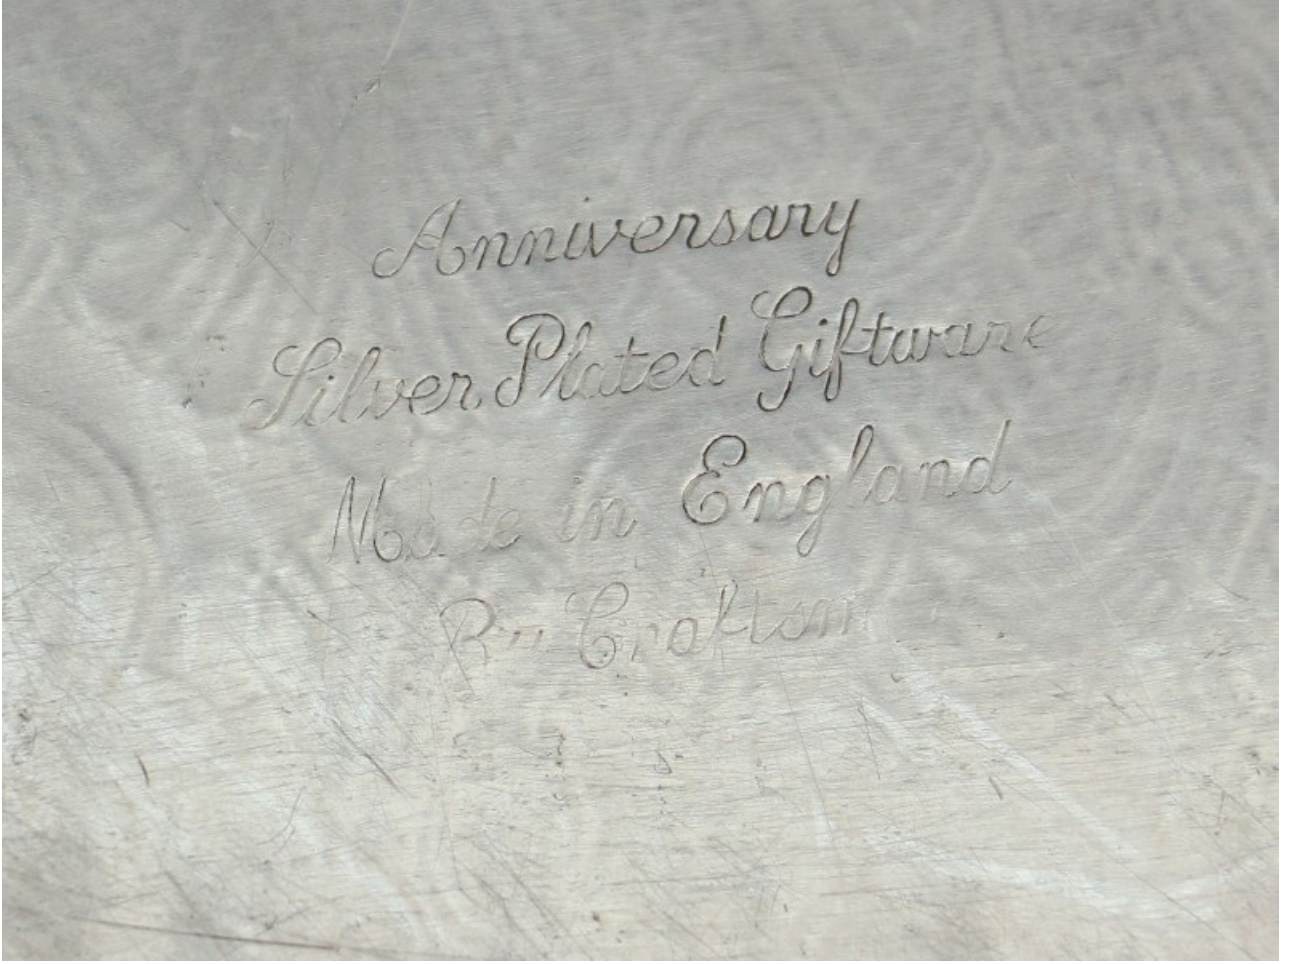 Anniversary
Silver Plated Giftware
Made in England
By